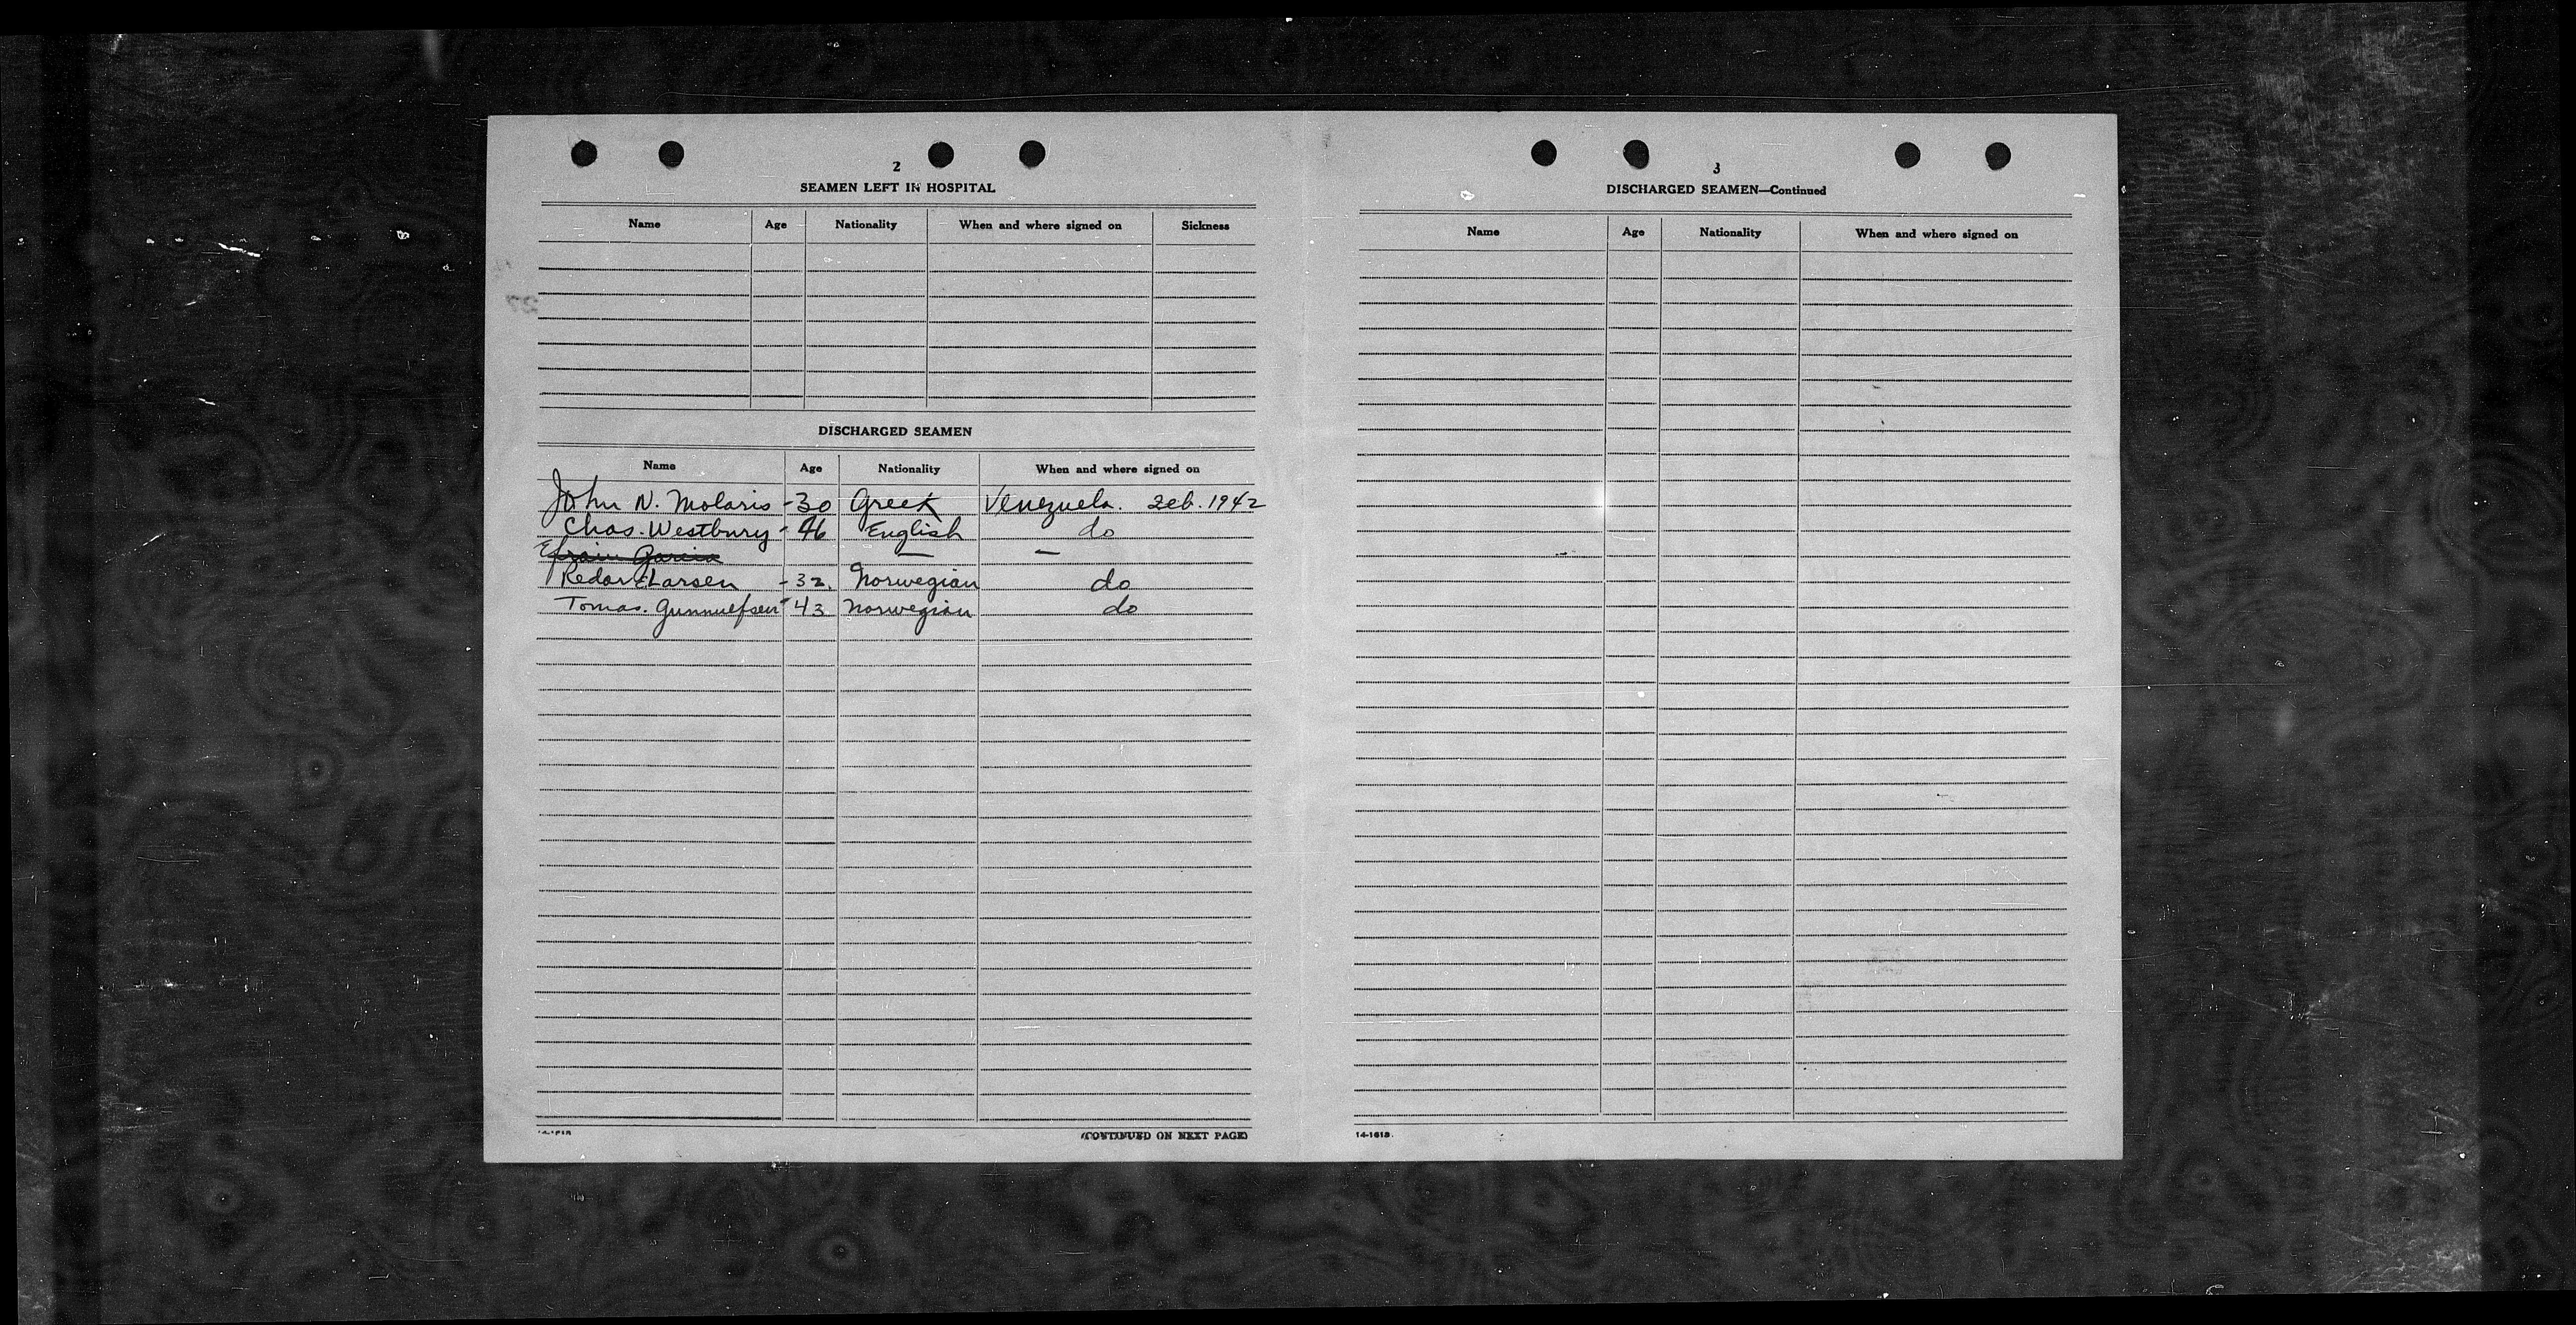 2
SEAMEN LEFT IN HOSPITAL
Name Age Nationality When and where signed on Sickness
DISCHARGED SEAMEN
Name Age Nationality When and where signed on
John N. Molaris - 30 Greek Venezuela. Feb. 1942
Chas. Westbury - 46 English do
Efrain Garcia — —
Redar Larsen - 32. Norwegian do
Tomas. Gunnulfsen - 43 Norwegian do
(CONTINUED ON NEXT PAGE)
3
DISCHARGED SEAMEN—Continued
Name Age Nationality When and where signed on
14-1618